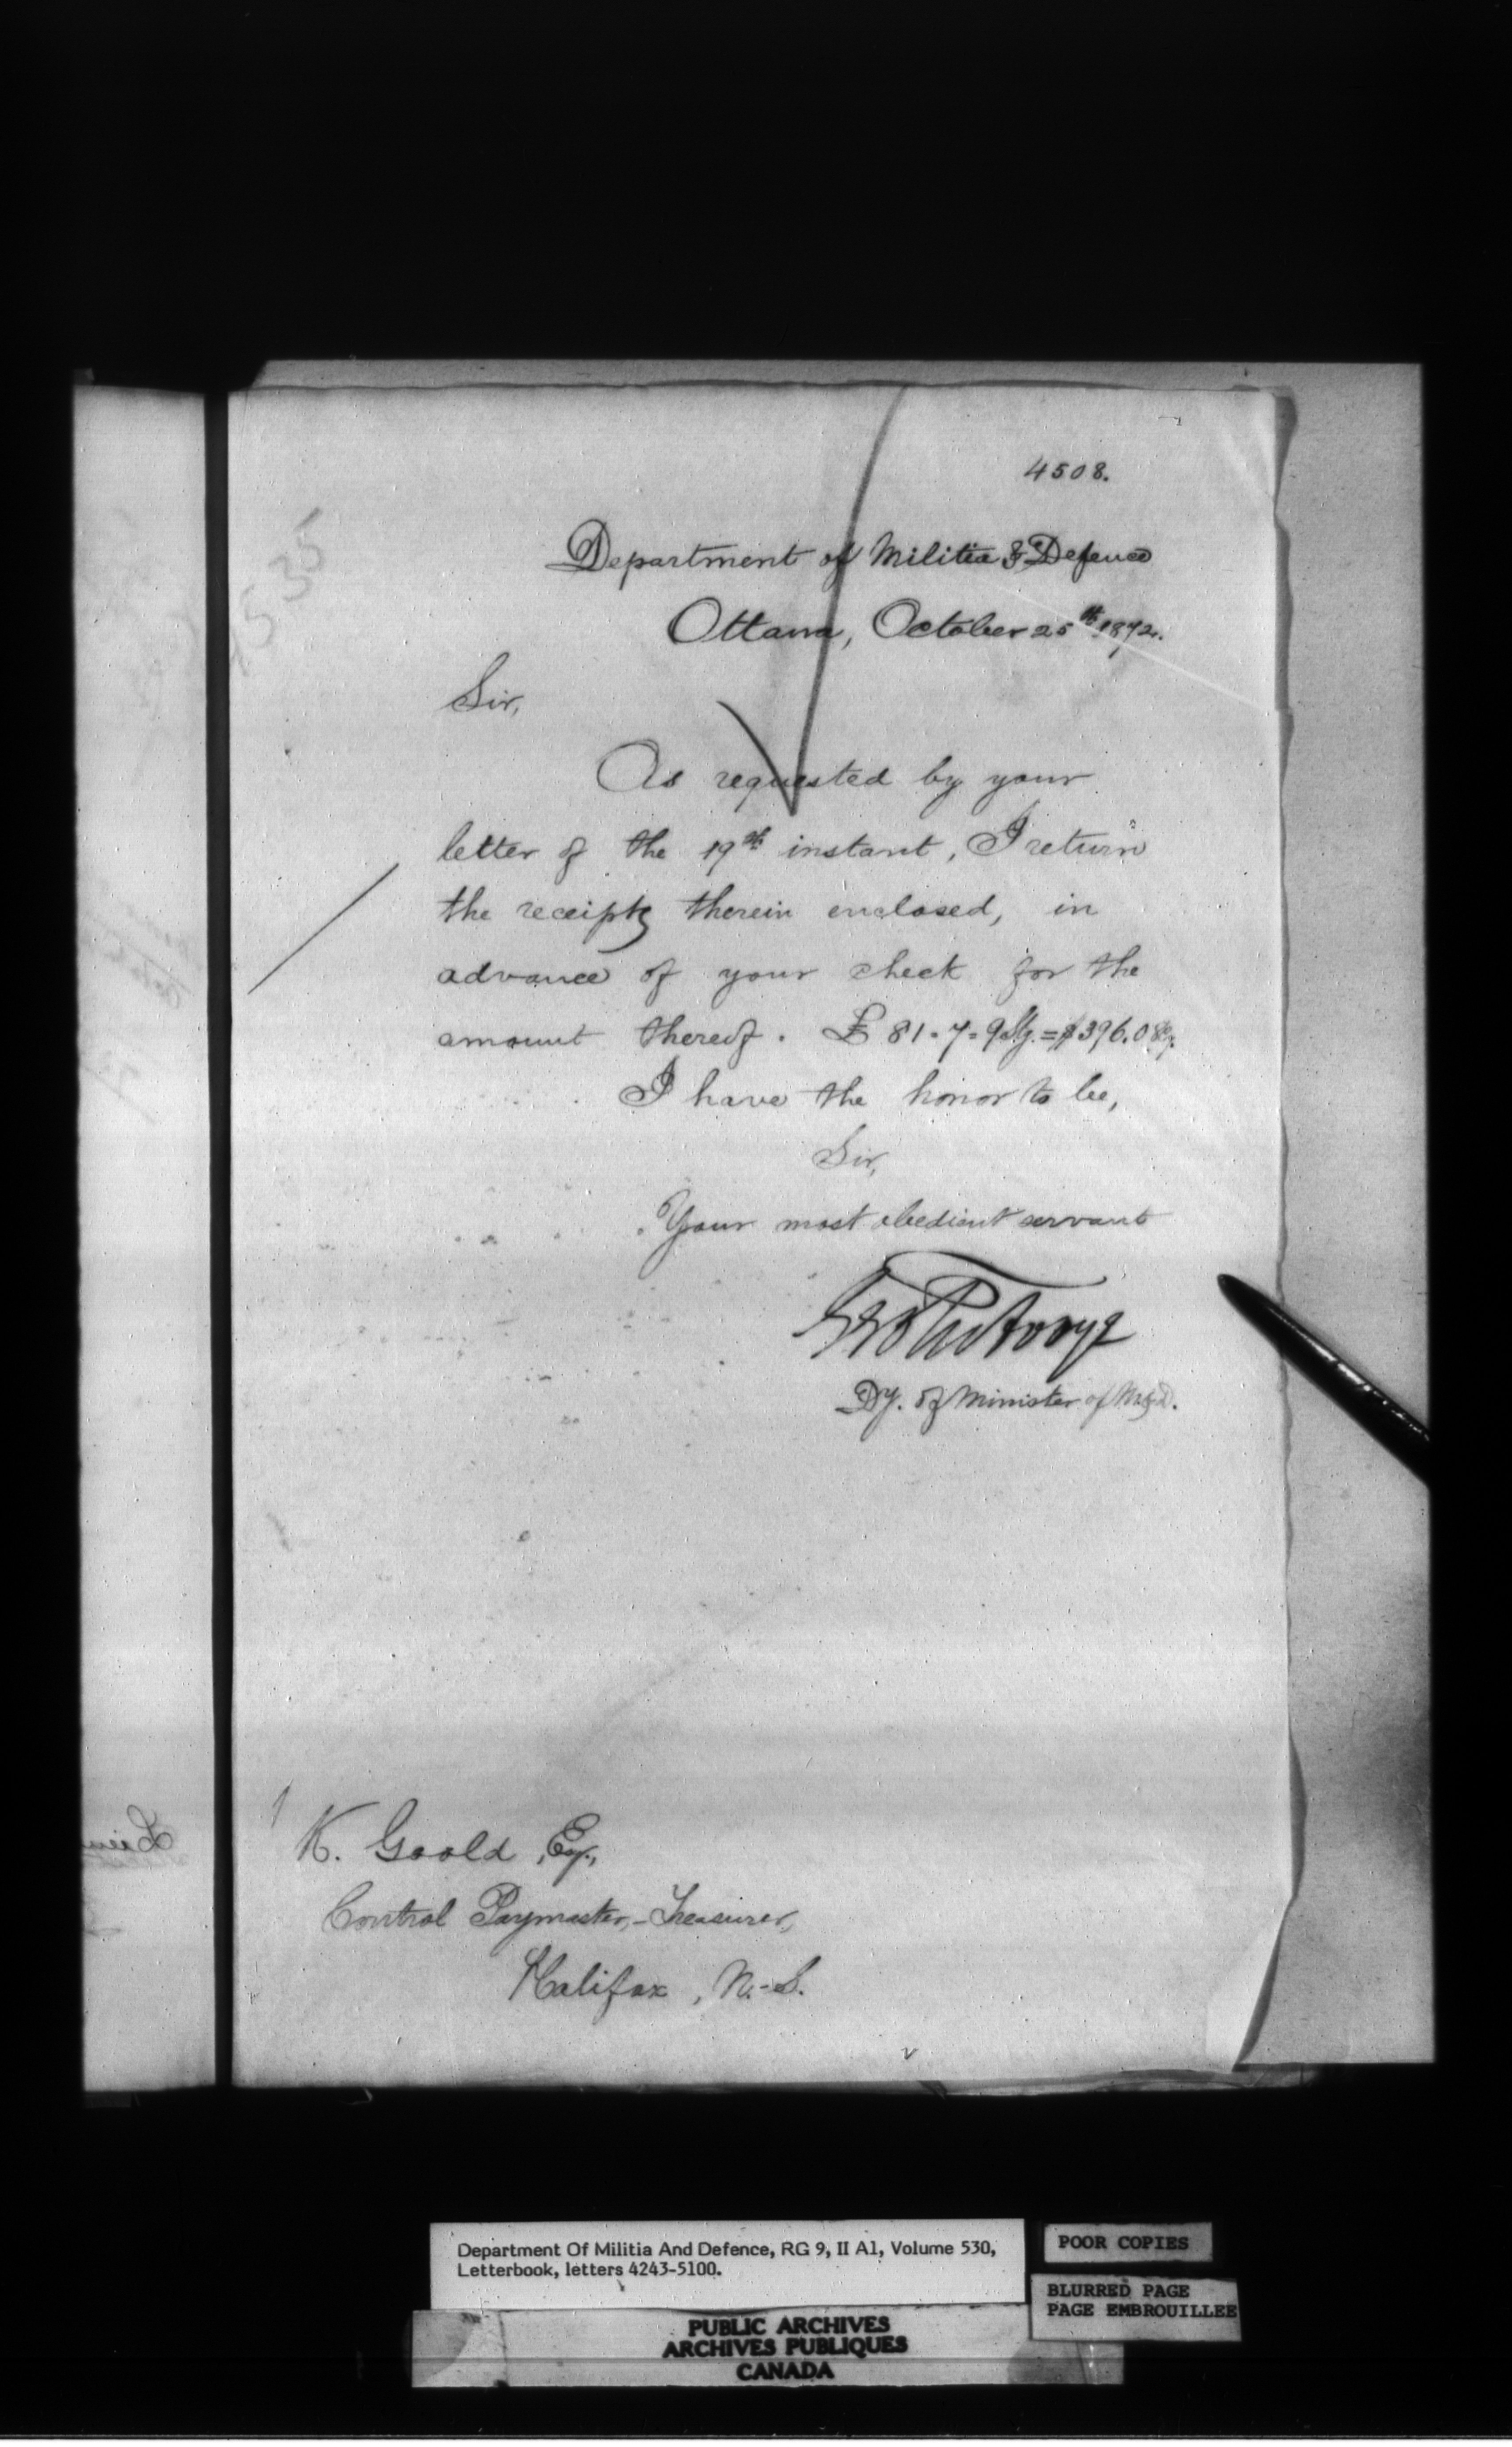 4508.
Department of Militia & Defence
Ottawa, October 25th 1872.
Sir,
As requested by your
letter of the 19th instant, I return
the receipts therein enclosed, in
advance of your check for the
amount thereof. £81-7-9 Stg. = $396.08
I have the honor to be,
Sir,
Your most obedient servant
Geo Futvoye
Dy. of Minister of M&D.
K. Goold, Esq.,
Control Paymaster,-Treasurer,
Halifax, N.-S.
Department Of Militia And Defence, RG 9, II A1, Volume 530,
Letterbook, letters 4243-5100.
POOR COPIES
BLURRED PAGE
PAGE EMBROUILLEE
PUBLIC ARCHIVES
ARCHIVES PUBLIQUES
CANADA